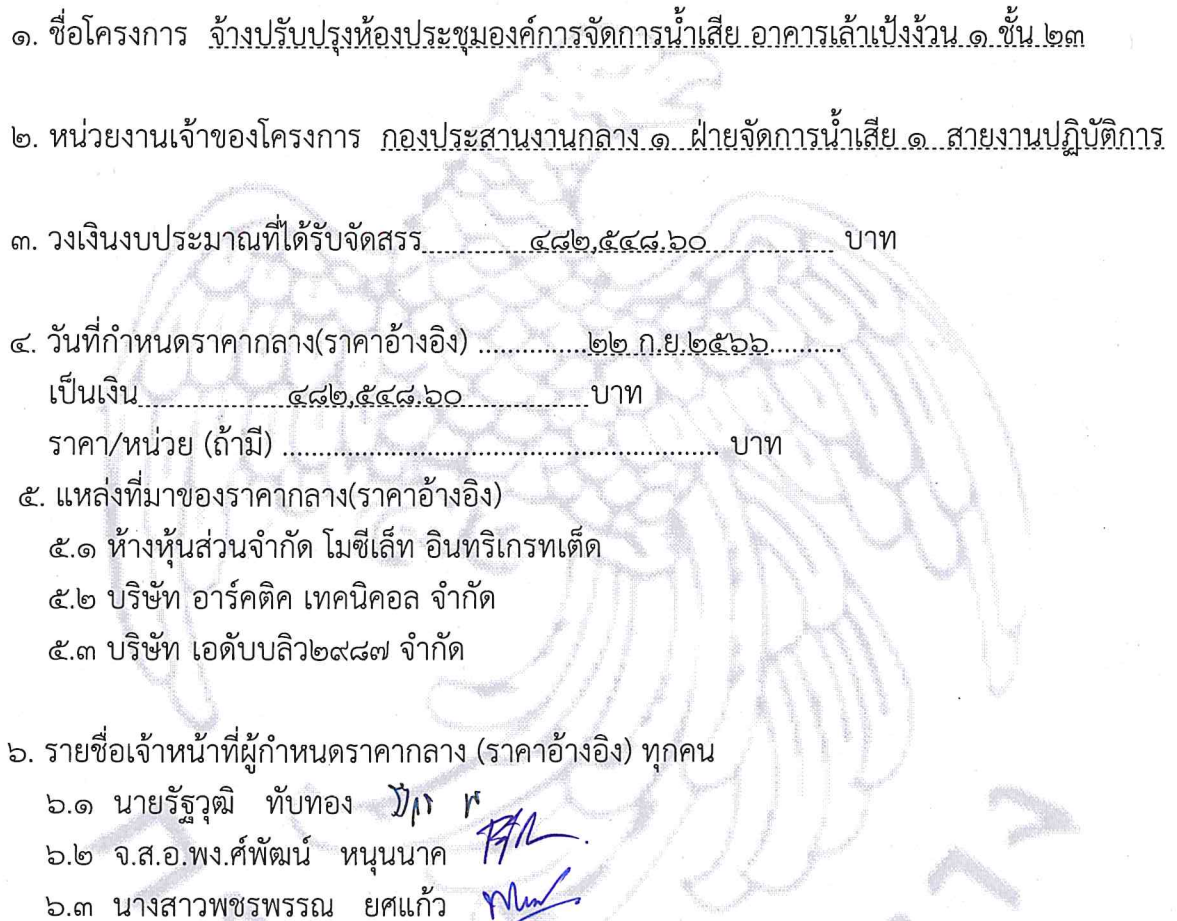 ๑. ชื่อโครงการ จ้างปรับปรุงห้องประชุมองค์การจัดการน้ำเสีย อาคารเล้าเป้งง้วน ๑ ชั้น ๒๓
๒. หน่วยงานเจ้าของโครงการ กองประสานงานกลาง ๑ ฝ่ายจัดการน้ำเสีย ๑ สายงานปฏิบัติการ
๓. วงเงินงบประมาณที่ได้รับจัดสรร ๔๘๒,๕๔๘.๖๐ บาท
๔. วันที่กำหนดราคากลาง(ราคาอ้างอิง) ..............๒๒ ก.ย.๒๕๖๖...........
เป็นเงิน ๔๘๒,๕๔๘.๖๐ บาท
ราคา/หน่วย (ถ้ามี) ....................................................... บาท
๕. แหล่งที่มาของราคากลาง(ราคาอ้างอิง)
๕.๑ ห้างหุ้นส่วนจำกัด โมซีเล็ท อินทริเกรทเต็ด
๕.๒ บริษัท อาร์คติค เทคนิคอล จำกัด
๕.๓ บริษัท เอดับบลิว๒๙๘๗ จำกัด
๖. รายชื่อเจ้าหน้าที่ผู้กำหนดราคากลาง (ราคาอ้างอิง) ทุกคน
๖.๑ นายรัฐวุฒิ ทับทอง
๖.๒ จ.ส.อ.พง.ศ์พัฒน์ หนุนนาค
๖.๓ นางสาวพชรพรรณ ยศแก้ว